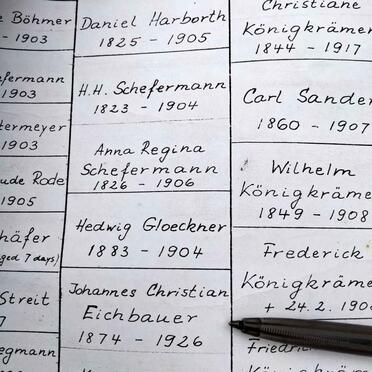 Böhmer
- 1903
fermann
1903
termeyer
1903
ude Rode
1905
häfer
aged 7 days)
Streit
7
egmann
Daniel Harborth
1825 - 1905
H.H. Schefermann
1823 - 1904
Anna Regina
Schefermann
1826 - 1906
Hedwig Gloeckner
1883 - 1904
Johannes Christian
Eichbauer
1874 - 1926
Christiane
Königkrämer
1844 - 1917
Carl Sander
1860 - 1907
Wilhelm
Königkräme
1849 - 1908
Frederick
Königkräme
+ 24.2. 190
Friedri